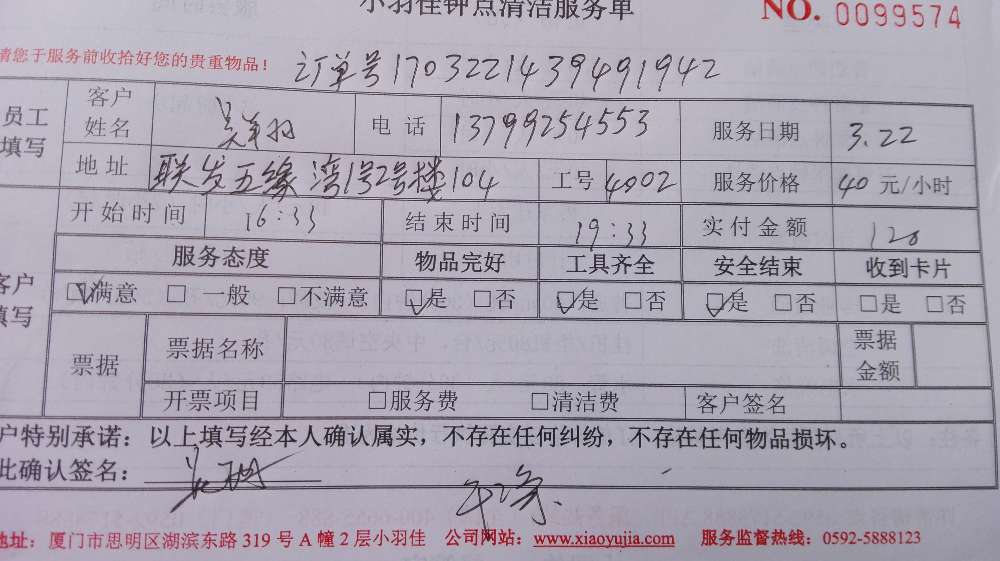 小羽佳钟点清洁服务单 NO. 0099574
请您于服务前收拾好您的贵重物品！ 订单号1703221439491942
员工填写 客户姓名 电话 13799254553 服务日期 3.22
地址 联发五缘湾1号2号楼104 工号 4002 服务价格 40 元/小时
开始时间 16:33 结束时间 19:33 实付金额 120
客户填写 服务态度 物品完好 工具齐全 安全结束 收到卡片
☑满意 □一般 □不满意 ☑是 □否 ☑是 □否 ☑是 □否 □是 □否
票据 票据名称 票据金额
开票项目 □服务费 □清洁费 客户签名
户特别承诺：以上填写经本人确认属实，不存在任何纠纷，不存在任何物品损坏。
此确认签名：
地址：厦门市思明区湖滨东路 319 号 A 幢 2 层小羽佳 公司网站：www.xiaoyujia.com 服务监督热线：0592-5888123